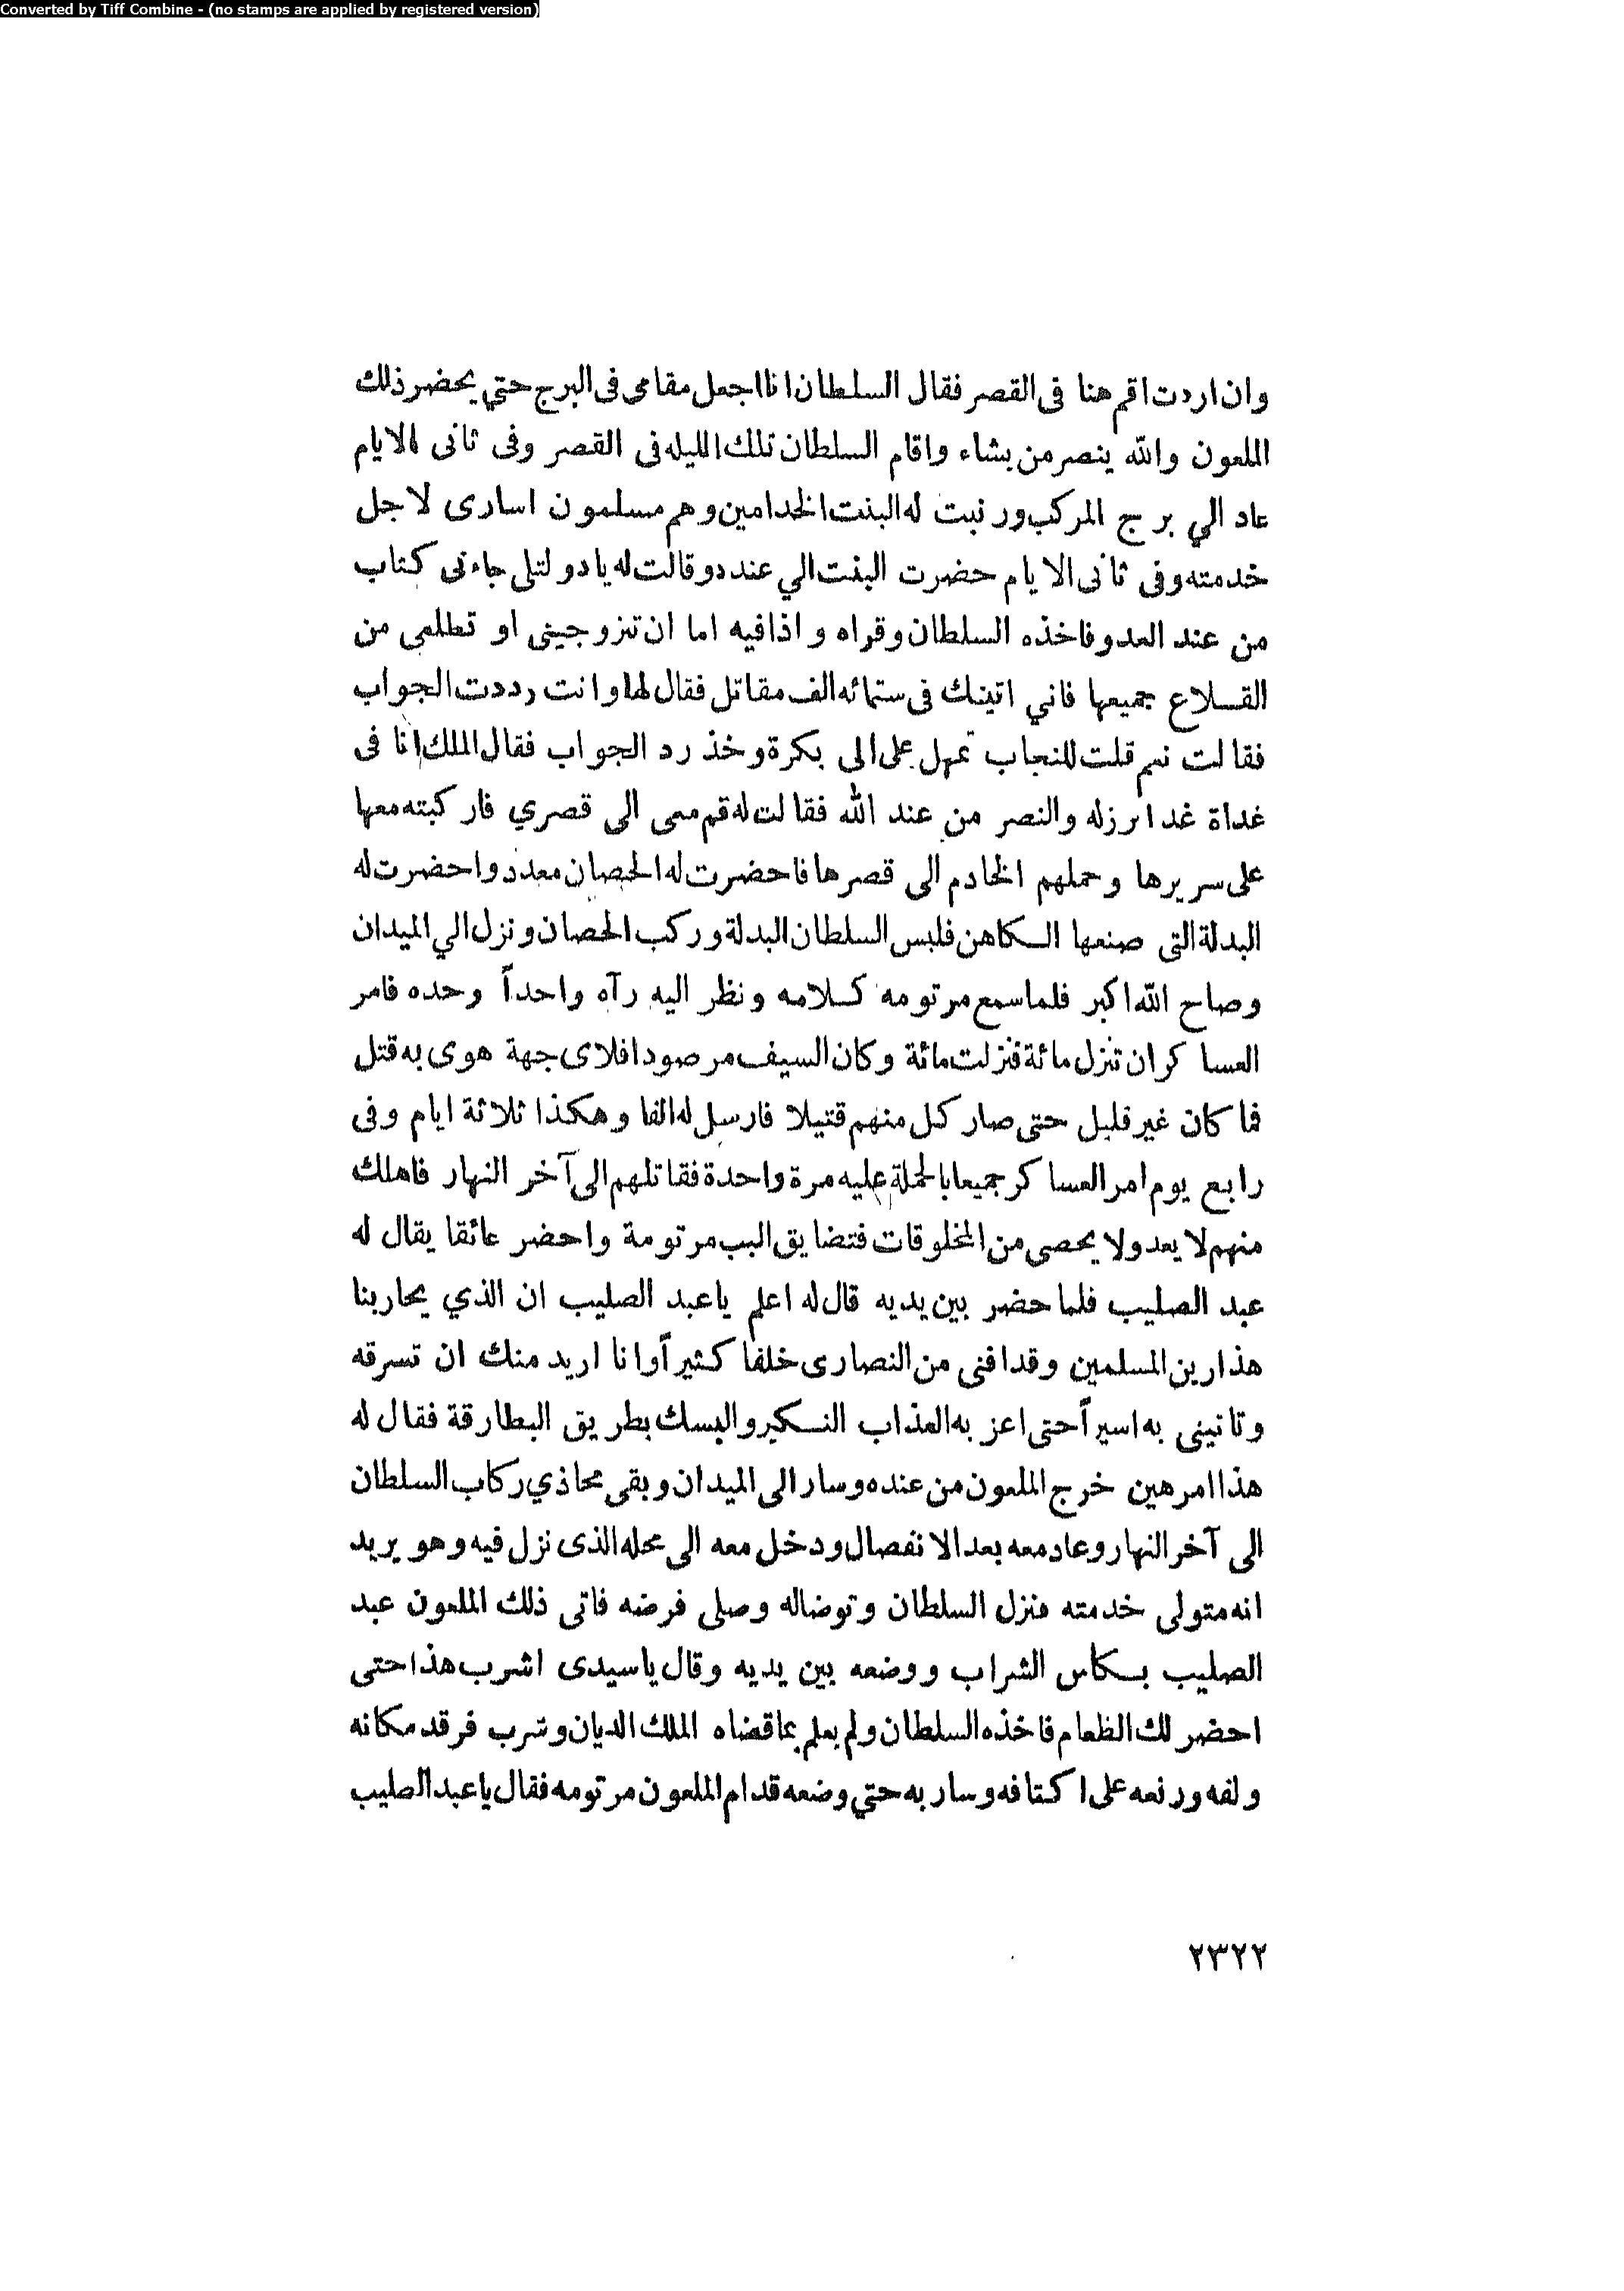 Converted by Tiff Combine - (no stamps are applied by registered version)
وان اردت اقم هنا فى القصر فقال السلطان انا اجعل مقامى فى البرج حتي يحضر ذلك
اللعون والله ينصر من يشاء واقام السلطان تلك الليله فى القصر وفى ثانى الايام
عاد الي برج المركب ورتبت له البنت الخدامين وهم مسلمون اسارى لاجل
خدمته وفى ثانى الايام حضرت البنت الي عنده وقالت له يا دولتلى جاءنى كتاب
من عند العدو فاخذه السلطان وقراه واذا فيه اما ان تتزوجينى او تطلعى من
القلاع جميعها فاني اتيتك فى ستمائه الف مقاتل فقال لها وانت رددت الجواب
فقالت نعم قلت للنجاب تمهل على الى بكرة وخذ رد الجواب فقال الملك انا فى
غداة غد ابرزله والنصر من عند الله فقالت له قم معى الى قصري فاركبته معها
على سريرها وحملهم الخادم الى قصرها فاحضرت له الحصان معدد واحضرت له
البدلة التى صنعها الكاهن فلبس السلطان البدلة وركب الحصان ونزل الي الميدان
وصاح الله اكبر فلما سمع مرتومه كلامه ونظر اليه رآه واحداً وحده فامر
العساكر ان تنزل مائة فنزلت مائة وكان السيف مرصودا فلاى جهة هوى به قتل
فما كان غير قليل حتى صار كل منهم قتيلا فارسل له الفا وهكذا ثلاثة ايام وفى
رابع يوم امر العساكر جميعا بالحملة عليه مرة واحدة فقاتلهم الى آخر النهار فاهلك
منهم لا يعد ولا يحصى من المخلوقات فتضايق البب مرتومة واحضر عائقا يقال له
عبد الصليب فلما حضر بين يديه قال له اعلم يا عبد الصليب ان الذي يحاربنا
هذا رين المسلمين وقد افنى من النصارى خلقا كثيراً وانا اريد منك ان تسرقه
وتاتينى به اسيراً حتى اعز به العذاب النكير والبسك بطريق البطارقة فقال له
هذا امر هين خرج الملعون من عنده وسار الى الميدان وبقى محاذي ركاب السلطان
الى آخر النهار وعاد معه بعد الانفصال ودخل معه الى محله الذى نزل فيه وهو يريد
انه متولى خدمته فنزل السلطان وتوضاله وصلى فرضه فاتى ذلك الملعون عبد
الصليب بكاس الشراب ووضعه بين يديه وقال يا سيدى اشرب هذا حتى
احضر لك الظعام فاخذه السلطان ولم يعلم بما قضاه الملك الديان وشرب فرقد مكانه
ولفه ورفعه على اكتافه وسار به حتي وضعه قدام الملعون مرتومه فقال يا عبد الصليب
٢٣٢٢